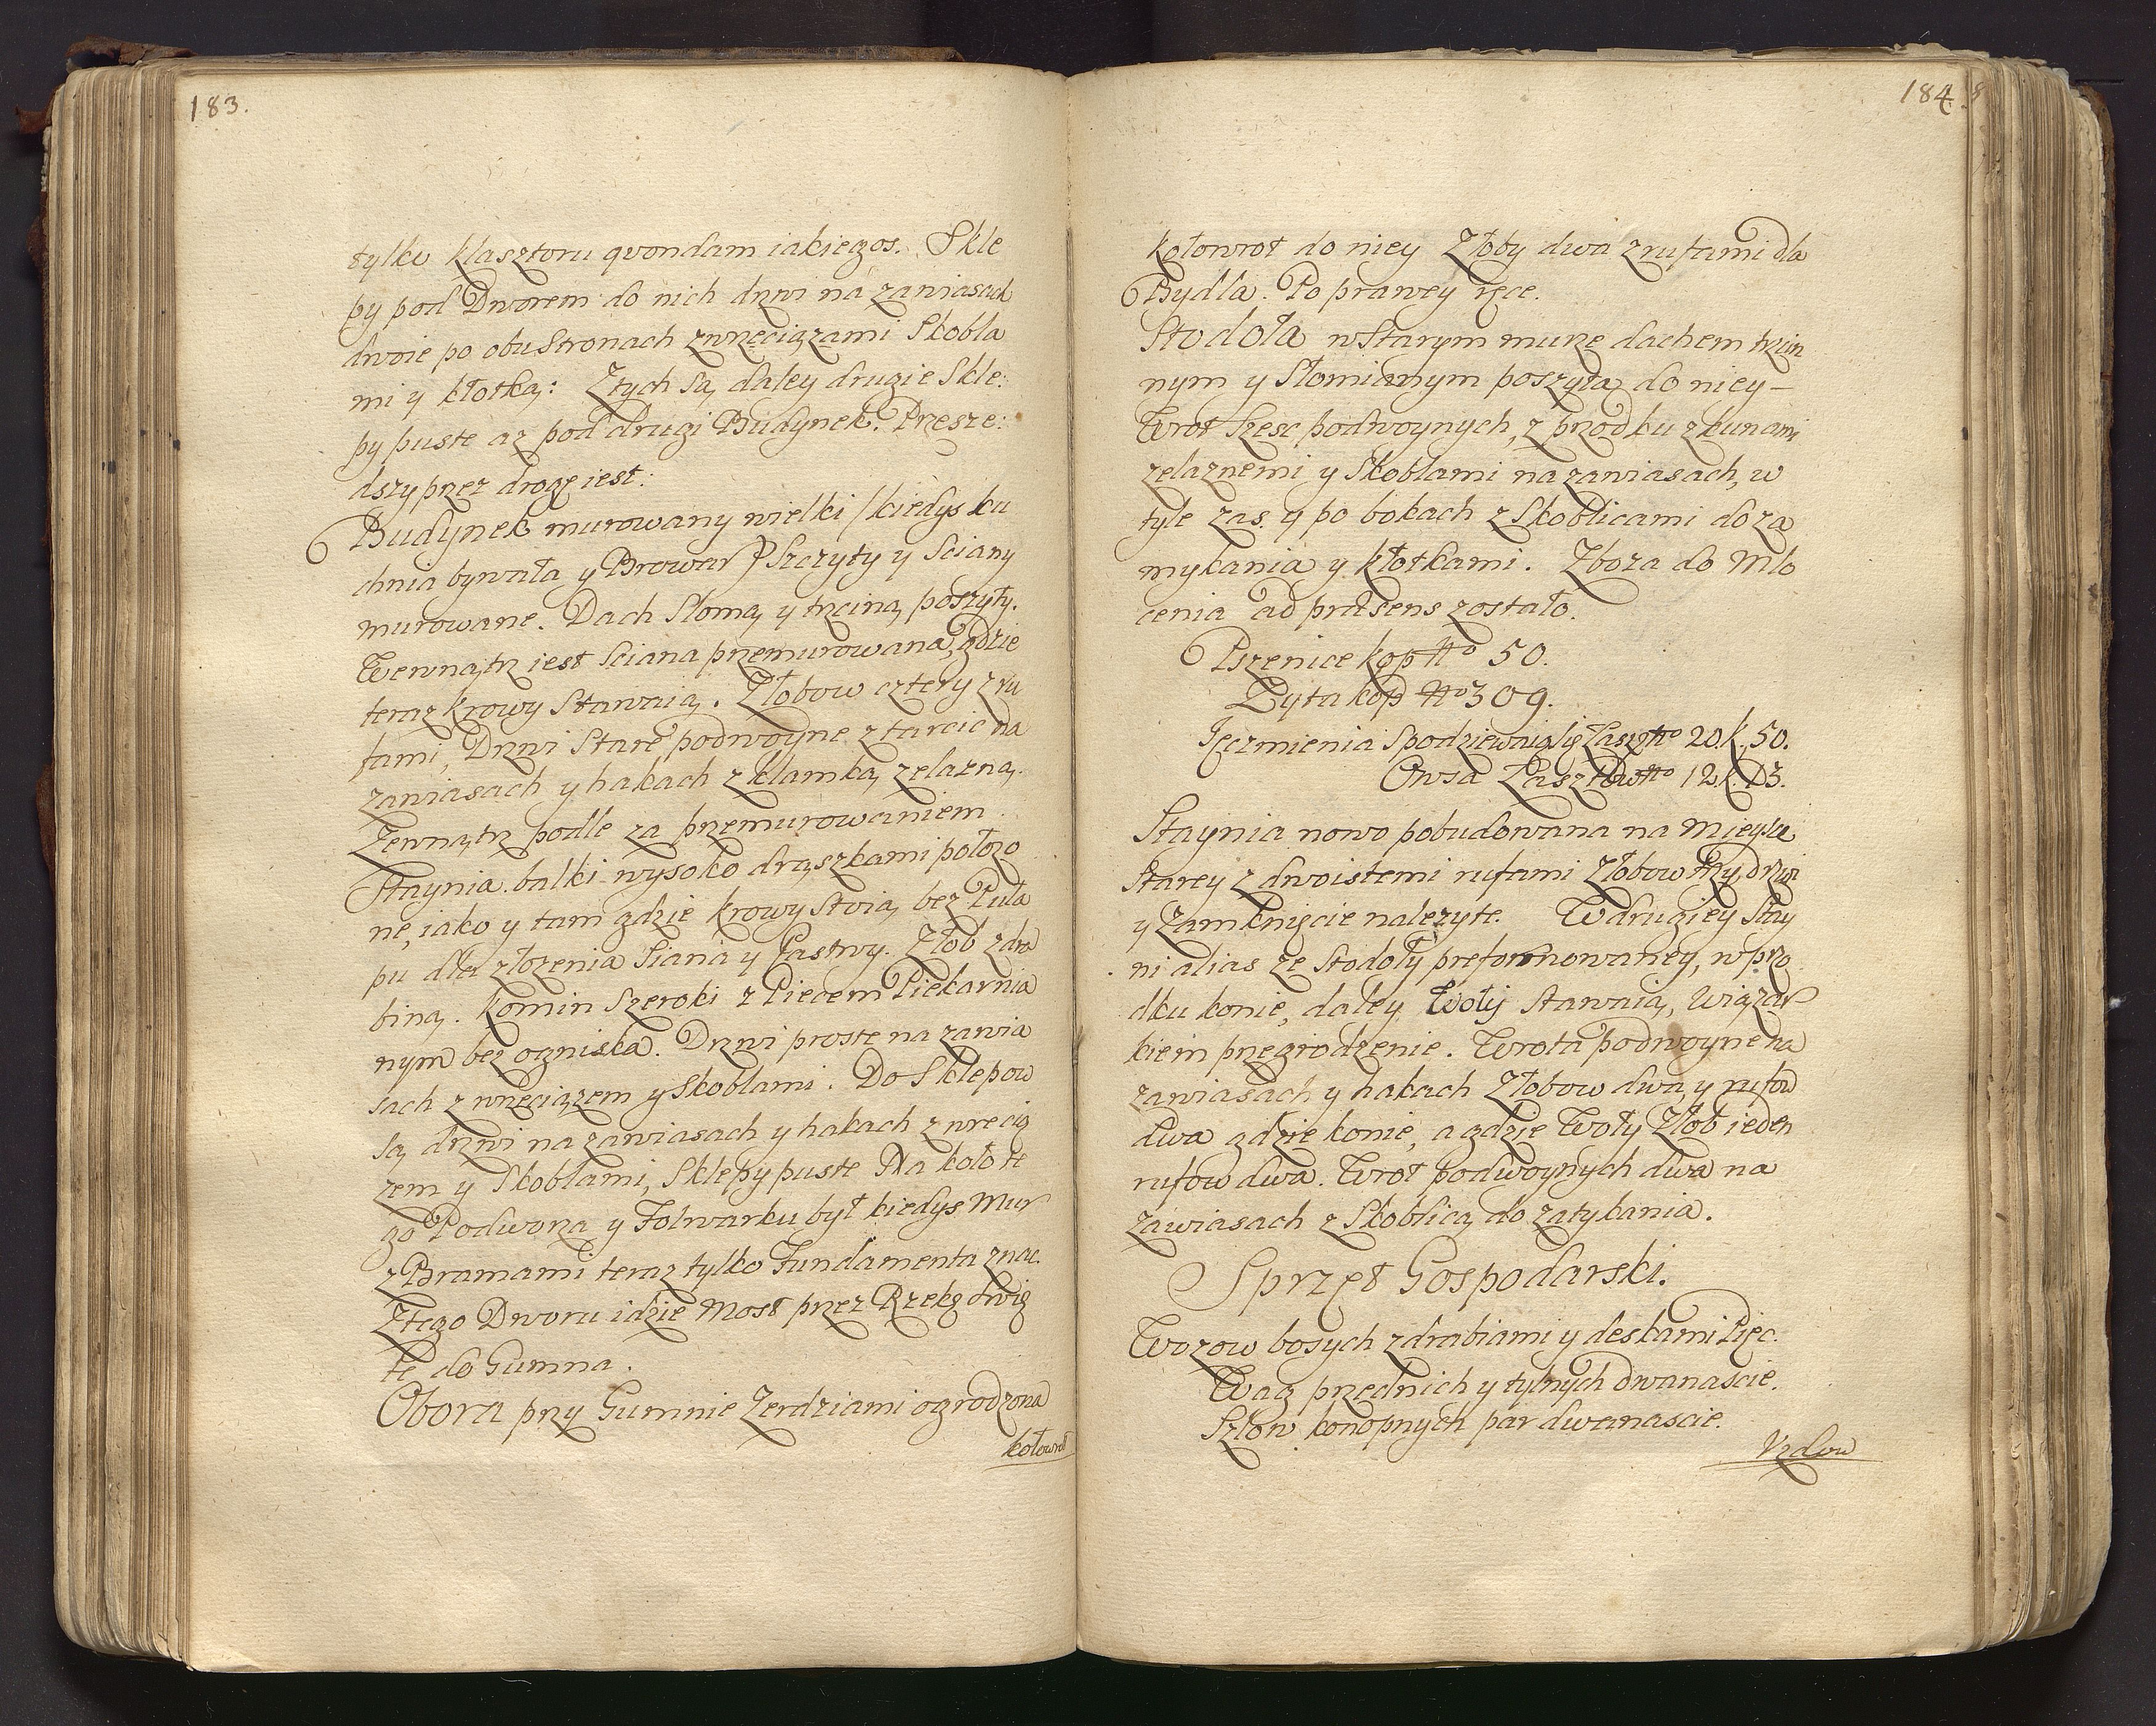 183.
tylko klasztoru qvondam iakiegos. Skle
py pod Dworem do nich drzwi na zawiasach
dwoie po obu Stronach zwrzeciązami Skobla
mi y kłotką: Ztych są daley drugie Skle:
py puste az pod drugi Budynek. Przesze:
dszy przez drogę iest:
Budynek murowany wielki /kiedys ku
chnia bywała y Browar/ Szczyty y Sciany
murowane. Dach Słomą y trzciną poszyty.
Wewnątrz iest Sciana przemurowana, gdzie
teraz krowy Stawaią. Złobow cztery zru
fami, Drzwi Stare podwoyne z tarcic na
zawiasach y hakach z klamką zelazną.
Zewnątrz podle za przemurowaniem.
Staynia. balki wysoko drąszkami połozo
ne, iako y tam gdzie krowy Stoią bez Puła
pu dla złozenia Siana y Pastwy. Złob zdra
biną. Komin Szeroki z Piecem Piekarnia
nym bez ogniska. Drzwi proste na zawia
sach z wrzeciązem y Skoblami. Do Sklepow
są drzwi na zawiasach y hakach z wrecią
zem y Skoblami, Sklepy puste Na koło te
go Podworza y Folwarku był kiedys Mur
z Bramami teraz tylko Fundamenta znac.
Ztego Dworu idzie Most przez Rzekę Swię
te do Gumna.
Obora przy Gumnie Zerdziami ogrodzona
kołowrot
184.
kołowrot do niey Złoby dwa zrufami dla
Bydła. Po prawey ręce.
Stodoła w Starym murze dachem trzcin
nym y Słomianym poszyta do niey-
Wrot Szesc podwoynych, z przodku z kunami
zelaznemi y Skoblami na zawiasach, w
tyle zas y po bokach z Skoblicami do za
mykania y kłotkami. Zboza do Mło
cenia ad præsens zostało.
Pszenice kop No 50.
Zyta kop No 309.
Jęczmienia Spodziewaią się Łaszt No 20. k. 50.
Owsa Łasztow No 12. k. 13.
Staynia nowo pobudowana na Mieyscu
Starey z dwoistemi rufami Złobow trzy, drzwi
y Zamknięcie nalezyte. W drugiey Stay
ni alias ze Stodoły preformowaney, w prza
dku konie, daley Woły Stawaią, Wiązar
kiem przegrodzenie. Wrota podwoyne na
zawiasach y hakach Złobow dwa, y rufow
dwa gdzie konie, a gdzie Woły Złob ieden
rufow dwa. Wrot podwoynych dwa na
zawiasach z Skoblicą do zatykania.
Sprzęt Gospodarski.
Wozow bosych zdrabiami y deskami Pięc.
Wag przednich y tylnych dwanascie.
Szlow konopnych par dwanascie.
Vzdow